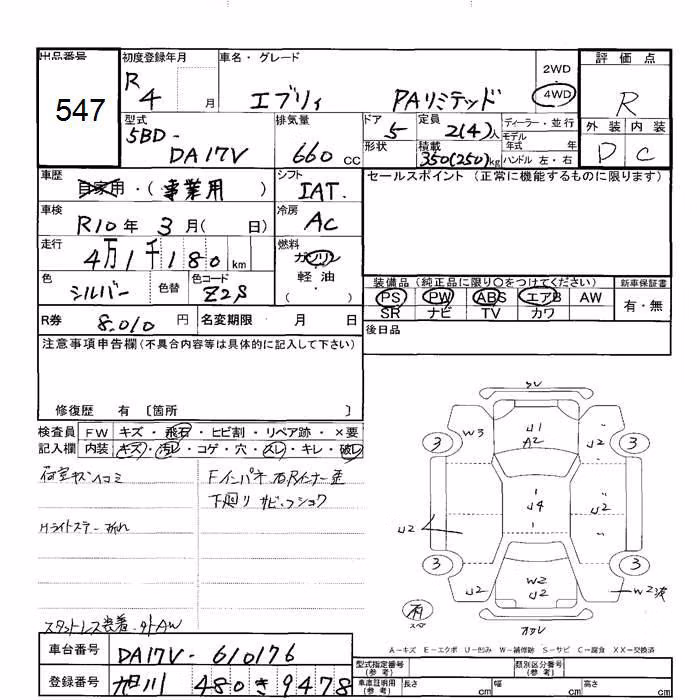 出品番号
547
初度登録年月
R 4 月
車名・グレード
エブリィ PAリミテッド
2WD
4WD
評価点
R
外装 内装
D C
型式
5BD-
DA17V
排気量
660 cc
ドア
5
形状
定員
2(4)人
積載
350(250)kg
ディーラー・並行
モデル
年式 年
ハンドル 左・右
車歴
自家用・(事業用)
シフト
IAT.
セールスポイント (正常に機能するものに限ります)
車検
R10年 3月( 日)
冷房
AC
走行
4万1千180km
燃料
ガソリン
軽・油
( )
色
シルバー
色替
色コード
Z2S
装備品 (純正品に限り○をつけてください)
新車保証書
PS PW ABS エアB AW
SR ナビ TV カワ
有・無
R券 8,010 円
名変期限 ・ 月 日
後日品
注意事項申告欄(不具合内容等は具体的に記入して下さい)
修復歴 有 〔箇所 〕
検査員
記入欄
FW キズ・飛石・ヒビ割・リペア跡・×要
内装 キズ・汚レ・コゲ・穴・スレ・キレ・破レ
荷室キズヘコミ
Fインパネ 右Rインナー歪
下廻り サビ・フショク
Hライトステー折れ
スタットレス装着・外AW
サレ
W3
U1
A2
U2
3
3
U4
U2
U2
3
3
U2
W2
U2
W2波
有
スペ
オクレ
A-キズ E-エクボ U-凹み W-補修跡 S-サビ C-腐食 XX-交換済
車台番号
DA17V-610176
登録番号
旭川 480 き 9478
型式指定番号
(参考)
類別区分番号
(参考)
車庫証明用
(参考)
長さ cm
幅 cm
高さ cm